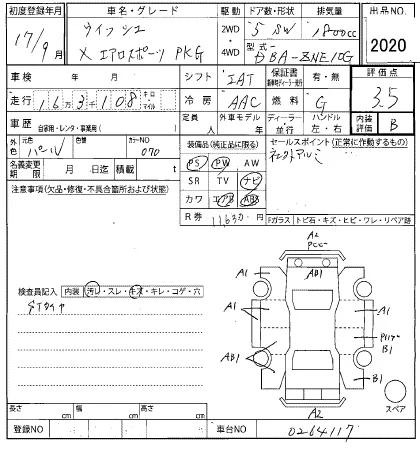 初度登録年月 車名・グレード 駆動 ドア数・形状 排気量 出品NO.
17/9月 ウイッシュ 2WD 5 SW 1800cc 2020
X エアロスポーツ PKG 4WD 型式 DBA-ZNE10G
車検 年 月 シフト IAT 保証書 有・無 評価点
走行 16万3千108 キロ マイル 冷房 AAC 燃料 G 3.5
車歴 自家用・レンタ・事業用( ) 定員 人 外車モデル 年 ディーラー 並行 ハンドル 左・右 内装評価 B
外色 元色 パール 色替 カラーNO 070
装備品(純正品に限る) セールスポイント(正常に作動するもの)
名義変更期限 月 日迄 積載 t
PS PW AW
注意事項(欠品・修復・不具合箇所および状態)
SR TV ナビ
カワ エアB ABS
R券 11,630
Fガラス トビ石・キズ・ヒビ・ワレ・リペア跡
A2
A1 AB1
検査員記入 内装 汚レ・スレ・キズ・キレ・コゲ・穴
A1 A1
B1
AB1 B1
A2 スペア
長さ cm 幅 cm 高さ cm
登録NO 車台NO 0264117